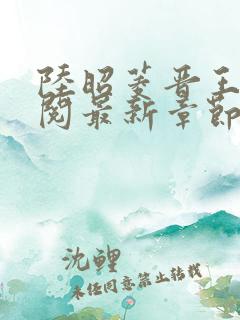 陸昭菱晋王
閱最新章節
沈鲤
未经同意禁止转载